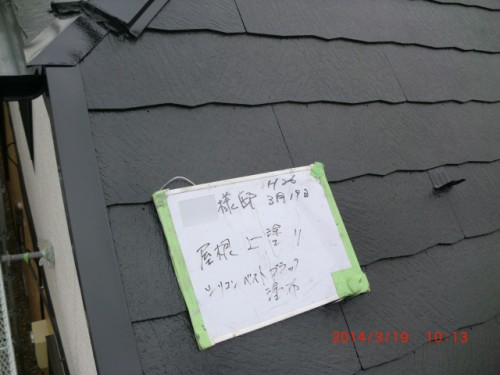 様邸 H26
3月19日
屋根上塗り
シリコンベストブラック
塗布
2014/3/19 10:13